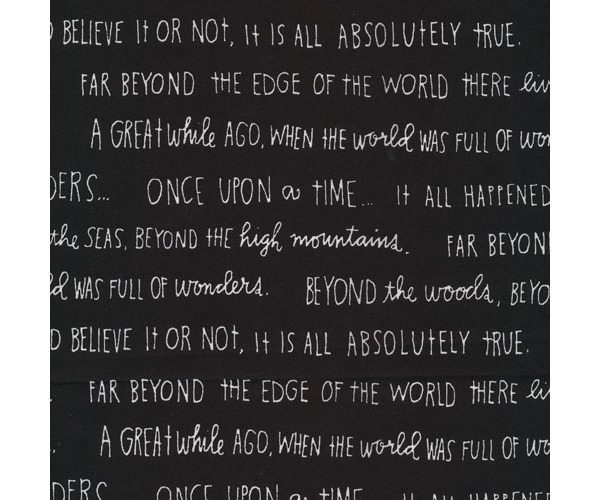 BELIEVE It OR NOt, It IS ALL ABSOLUtELY tRUE.
FAR BEYOND tHE EDGE OF tHE WORLD tHERE liv
A GREAt while AGO, WHEN tHE world WAS FULL OF won
DERS... ONCE UPON a tIME... It ALL HAPPENED
the SEAS, BEYOND tHE high mountains. FAR BEYON
ld WAS FULL OF wonders. BEYOND the woods, BEYO
D BELIEVE It OR NOt, It IS ALL ABSOLUtELY tRUE.
FAR BEYOND tHE EDGE OF tHE WORLD tHERE liv
A GREAt while AGO, WHEN tHE world WAS FULL OF wo
DERS ONCE UPON a tIME It ALL HAPPENED